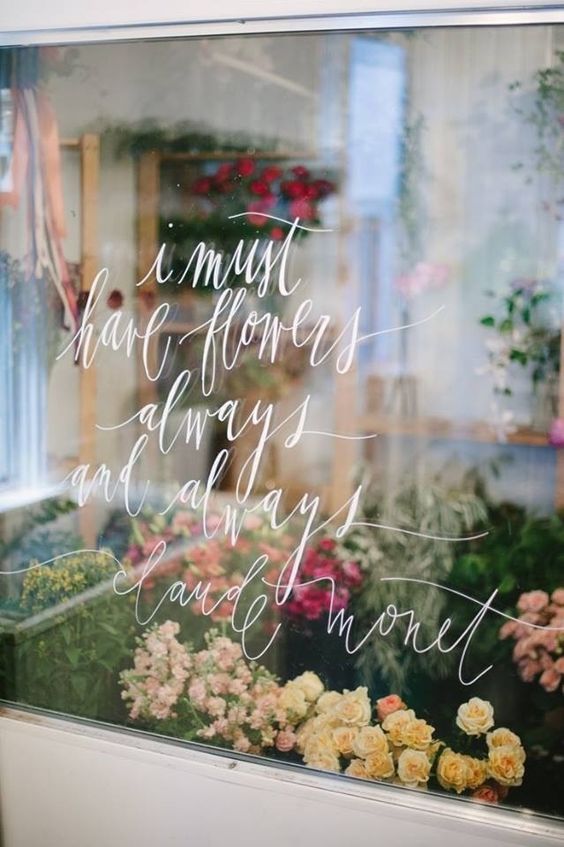 i must
have flowers
always
and always
claude monet